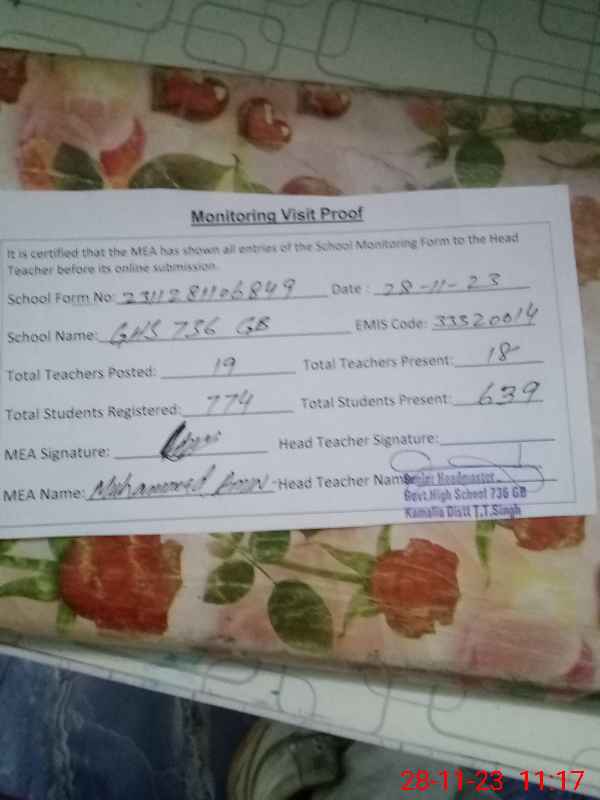 Monitoring Visit Proof
It is certified that the MEA has shown all entries of the School Monitoring Form to the Head
Teacher before its online submission.
School Form No: 2311281106849 Date : 28-11-23
School Name: GHS 736 GB EMIS Code: 33320014
Total Teachers Posted: 19 Total Teachers Present: 18
Total Students Registered: 774 Total Students Present: 639
MEA Signature: Head Teacher Signature:
MEA Name: Muhammad Amin Head Teacher Name
Senior Headmaster
Govt.High School 736 GB
Kamalia Distt T.T.Singh
28-11-23 11:17